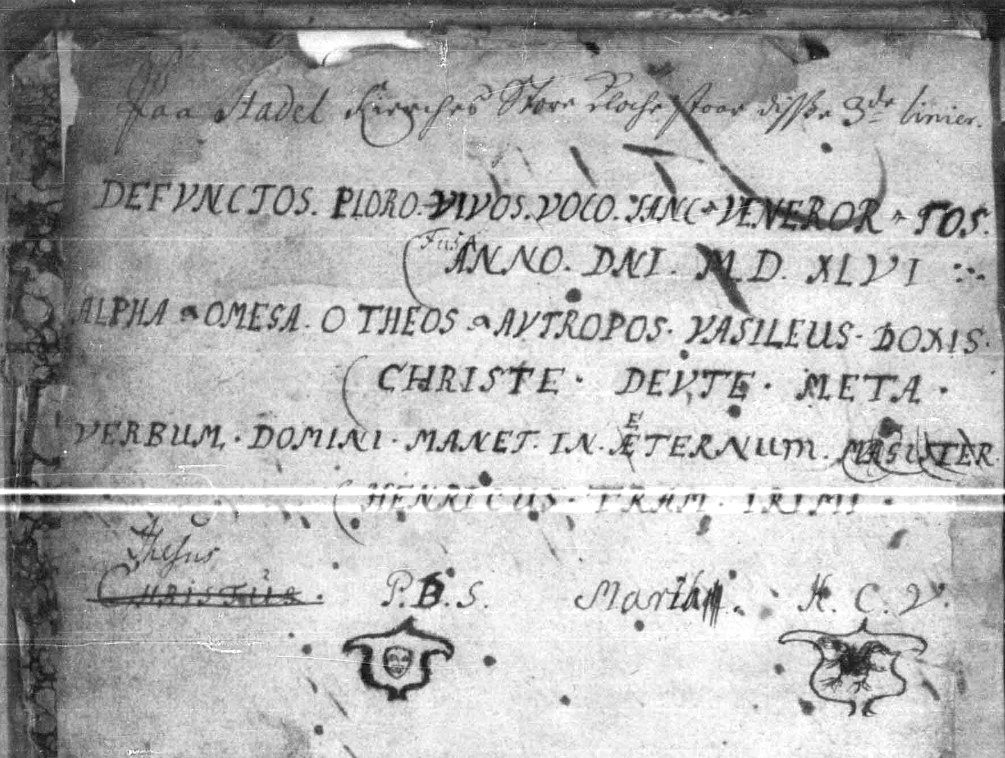 Paa Stadel Kierches Store Kloche staar disse 3de linier.
DEFVNCTOS. PLORO. VIVOS. VOCO. SANC VENEROR TOS.
Fusa
ANNO. DNI. M.D. XLVI
ALPHA OMEGA. O THEOS AVTROPOS. VASILEUS. DOXIS.
CHRISTE. DEVTE. META.
E
VERBUM. DOMINI. MANET. IN. ÆTERNUM. MAGISTER.
HENRICUS. TRAM. IRIMI.
Jhesus
CHRISTUS. P.B.S. Maria. H. C. V.